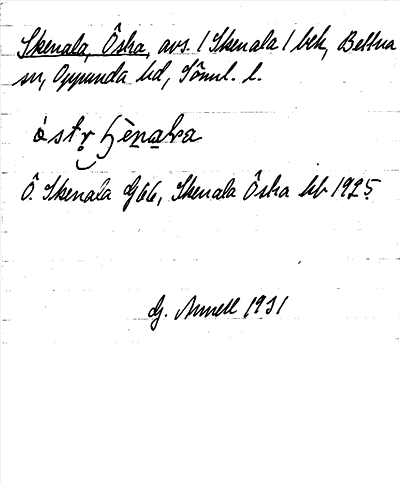 Skenala, Östra, avs. / Skenala / bek, Bettna
sn, Oppunda hd, Söml. l.
Ö. Skenala G66, Skenala Östra kb 1925
G. Annell 1931